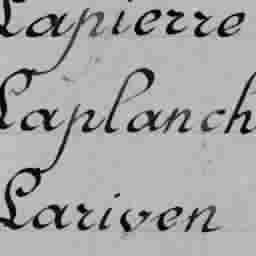 Lapierre
Laplanch
Lariven